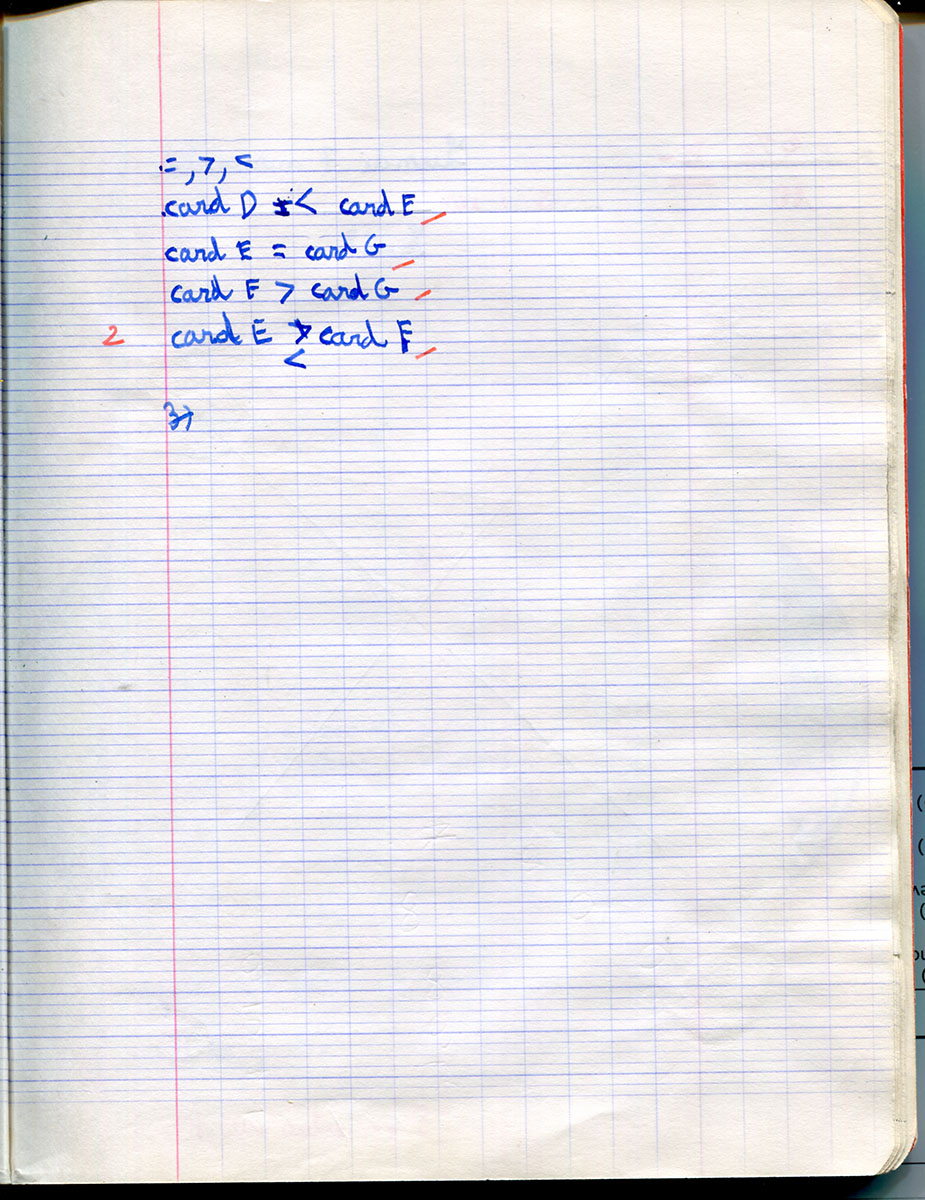 =, >, <
card D < card E
card E = card G
card F > card G
2 card E < card F
3)